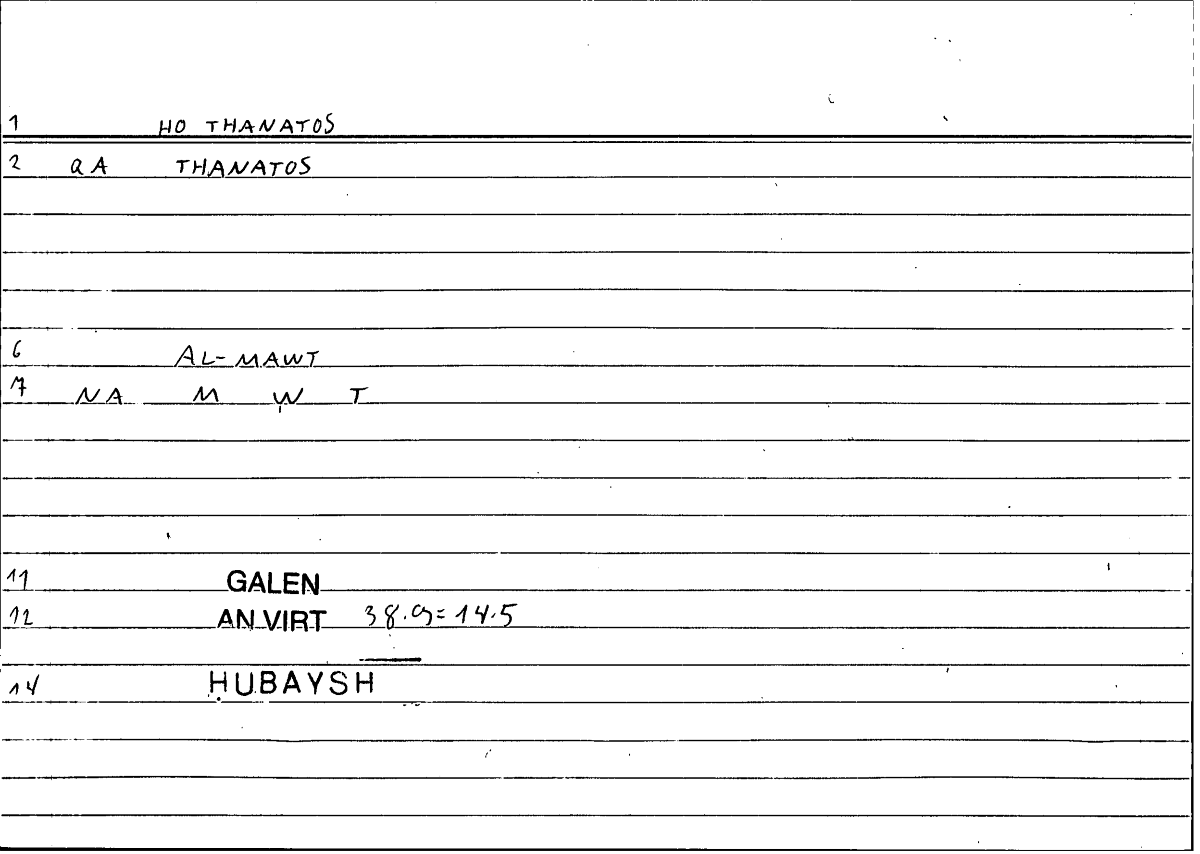 1 HO THANATOS
2 QA THANATOS
6 AL-MAWT
7 NA M W T
11 GALEN
12 AN VIRT 38.9=14.5
14 ḤUBAYSH